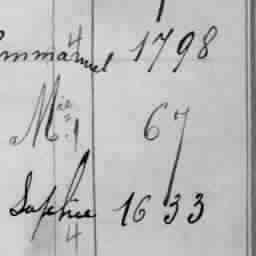 Emmanuel 1798
Mie 67
Sophie 1633